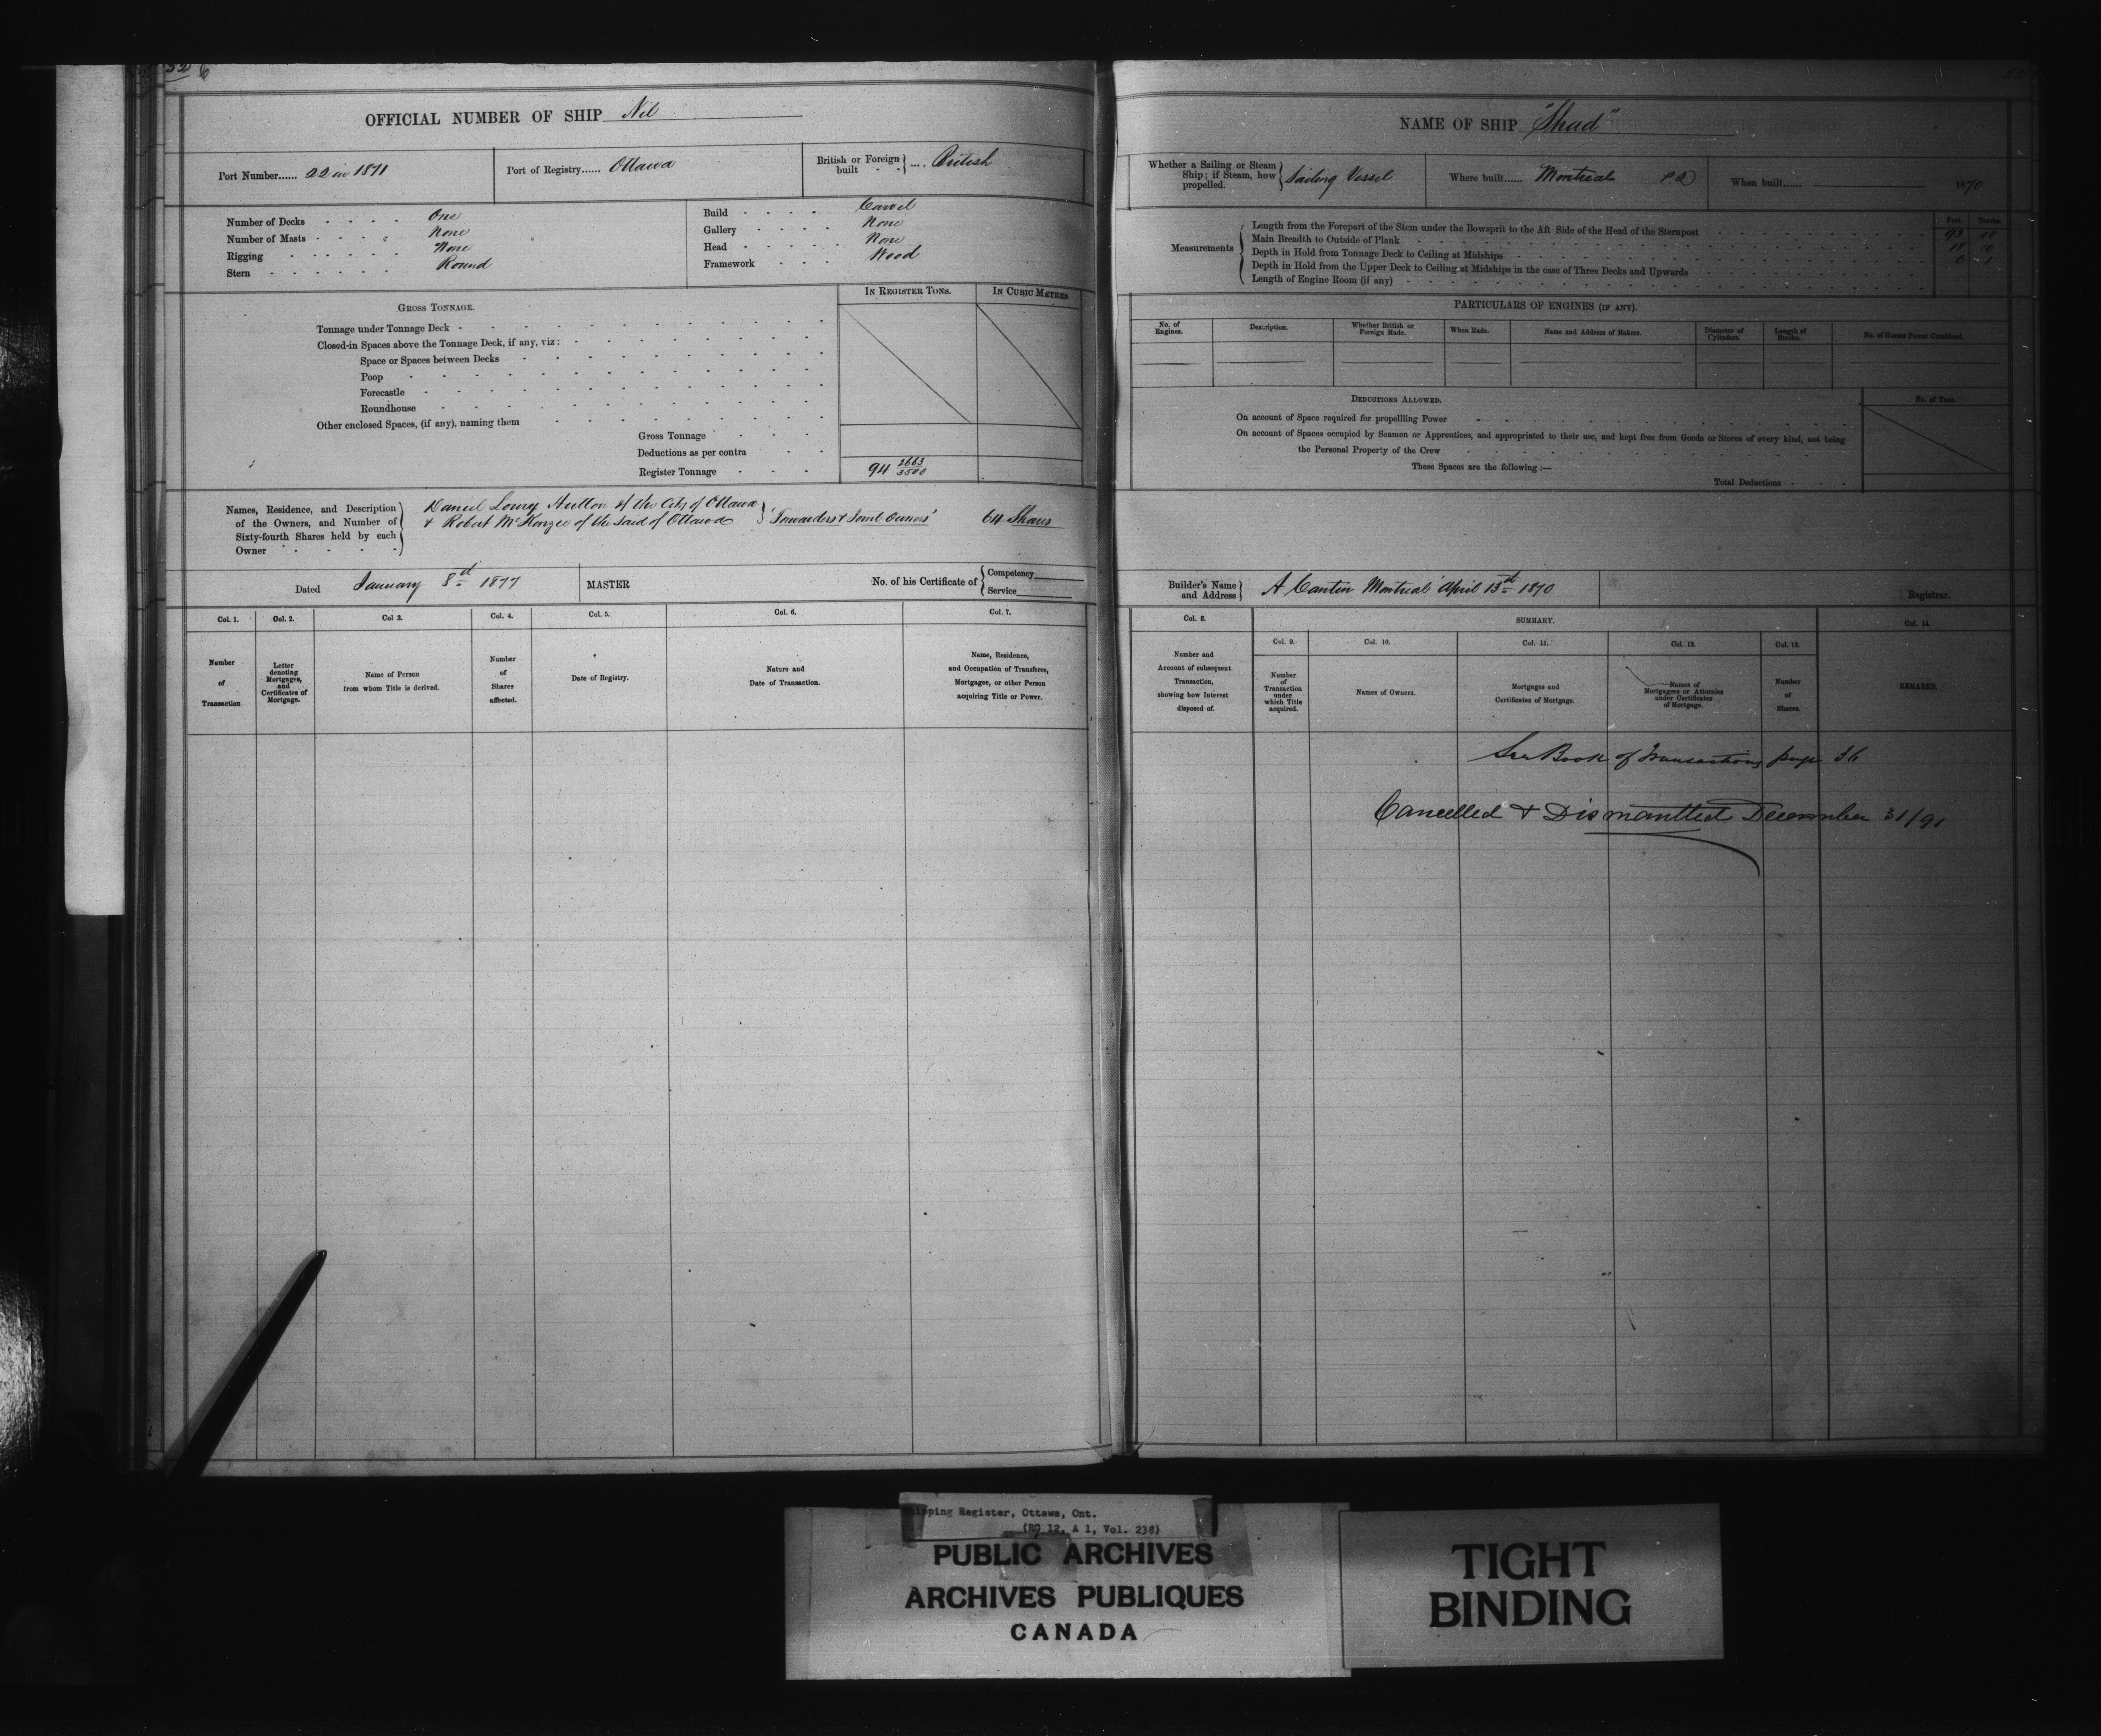 OFFICIAL NUMBER OF SHIP Nil
Port Number...... 22 in 1871
Port of Registry...... Ottawa
British or Foreign built - - } .... British
Number of Decks - - - - One
Number of Masts - - - - None
Rigging - - - - - None
Stern - - - - - - Round
Build - - - - Carvel
Gallery - - - - None
Head - - - - - None
Framework - - - - Wood
GROSS TONNAGE.
IN REGISTER TONS.
IN CUBIC METRES
Tonnage under Tonnage Deck
Closed-in Spaces above the Tonnage Deck, if any, viz:
Space or Spaces between Decks
Poop
Forecastle
Roundhouse
Other enclosed Spaces, (if any), naming them
Gross Tonnage
Deductions as per contra
Register Tonnage 94 2663/3500
Names, Residence, and Description
of the Owners, and Number of
Sixty-fourth Shares held by each
Owner
Daniel Lowry of the City of Ottawa
& Robert McKenzie of the said of Ottawa } "Forwarders & Joint Owners" 64 Shares
Dated January 8th 1877
MASTER
No. of his Certificate of { Competency
Service
Col. 1.
Col. 2.
Col 3.
Col. 4.
Col. 5.
Col. 6.
Col. 7.
Number
of
Transaction
Letter
denoting
Mortgages,
and
Certificates of
Mortgage.
Name of Person
from whom Title is derived.
Number
of
Shares
affected.
Date of Registry.
Nature and
Date of Transaction.
Name, Residence,
and Occupation of Transferee,
Mortgagee, or other Person
acquiring Title or Power.
NAME OF SHIP "Shad"
Whether a Sailing or Steam
Ship; if Steam, how
propelled. } Sailing Vessel
Where built...... Montreal P.Q
When built...... 1870
Measurements
Feet. Tenths.
Length from the Forepart of the Stem under the Bowsprit to the Aft Side of the Head of the Sternpost 93 00
Main Breadth to Outside of Plank 18 10
Depth in Hold from Tonnage Deck to Ceiling at Midships 6 1
Depth in Hold from the Upper Deck to Ceiling at Midships in the case of Three Decks and Upwards
Length of Engine Room (if any)
PARTICULARS OF ENGINES (IF ANY).
No. of
Engines.
Description.
Whether British or
Foreign Made.
When Made.
Name and Address of Makers.
Diameter of
Cylinders.
Length of
Stroke.
No. of Horses Power Combined.
DEDUCTIONS ALLOWED.
No. of Tons.
On account of Space required for propellling Power
On account of Spaces occupied by Seamen or Apprentices, and appropriated to their use, and kept free from Goods or Stores of every kind, not being
the Personal Property of the Crew
These Spaces are the following :—
Total Deductions
Builder's Name
and Address } A Cantin Montreal April 13th 1870
Registrar.
Col. 8.
SUMMARY.
Col. 14.
Col. 9.
Col. 10.
Col. 11.
Col. 12.
Col. 13.
Number and
Account of subsequent
Transaction,
showing how Interest
disposed of.
Number
of
Transaction
under
which Title
acquired.
Names of Owners.
Mortgages and
Certificates of Mortgage.
Names of
Mortgagees or Attornies
under Certificates
of Mortgage.
Number
of
Shares.
REMARKS.
See Book of Transactions page 36
Cancelled & Dismantled December 31/91
Shipping Register, Ottawa, Ont.
(RG 12, A 1, Vol. 238)
PUBLIC ARCHIVES
ARCHIVES PUBLIQUES
CANADA
TIGHT
BINDING